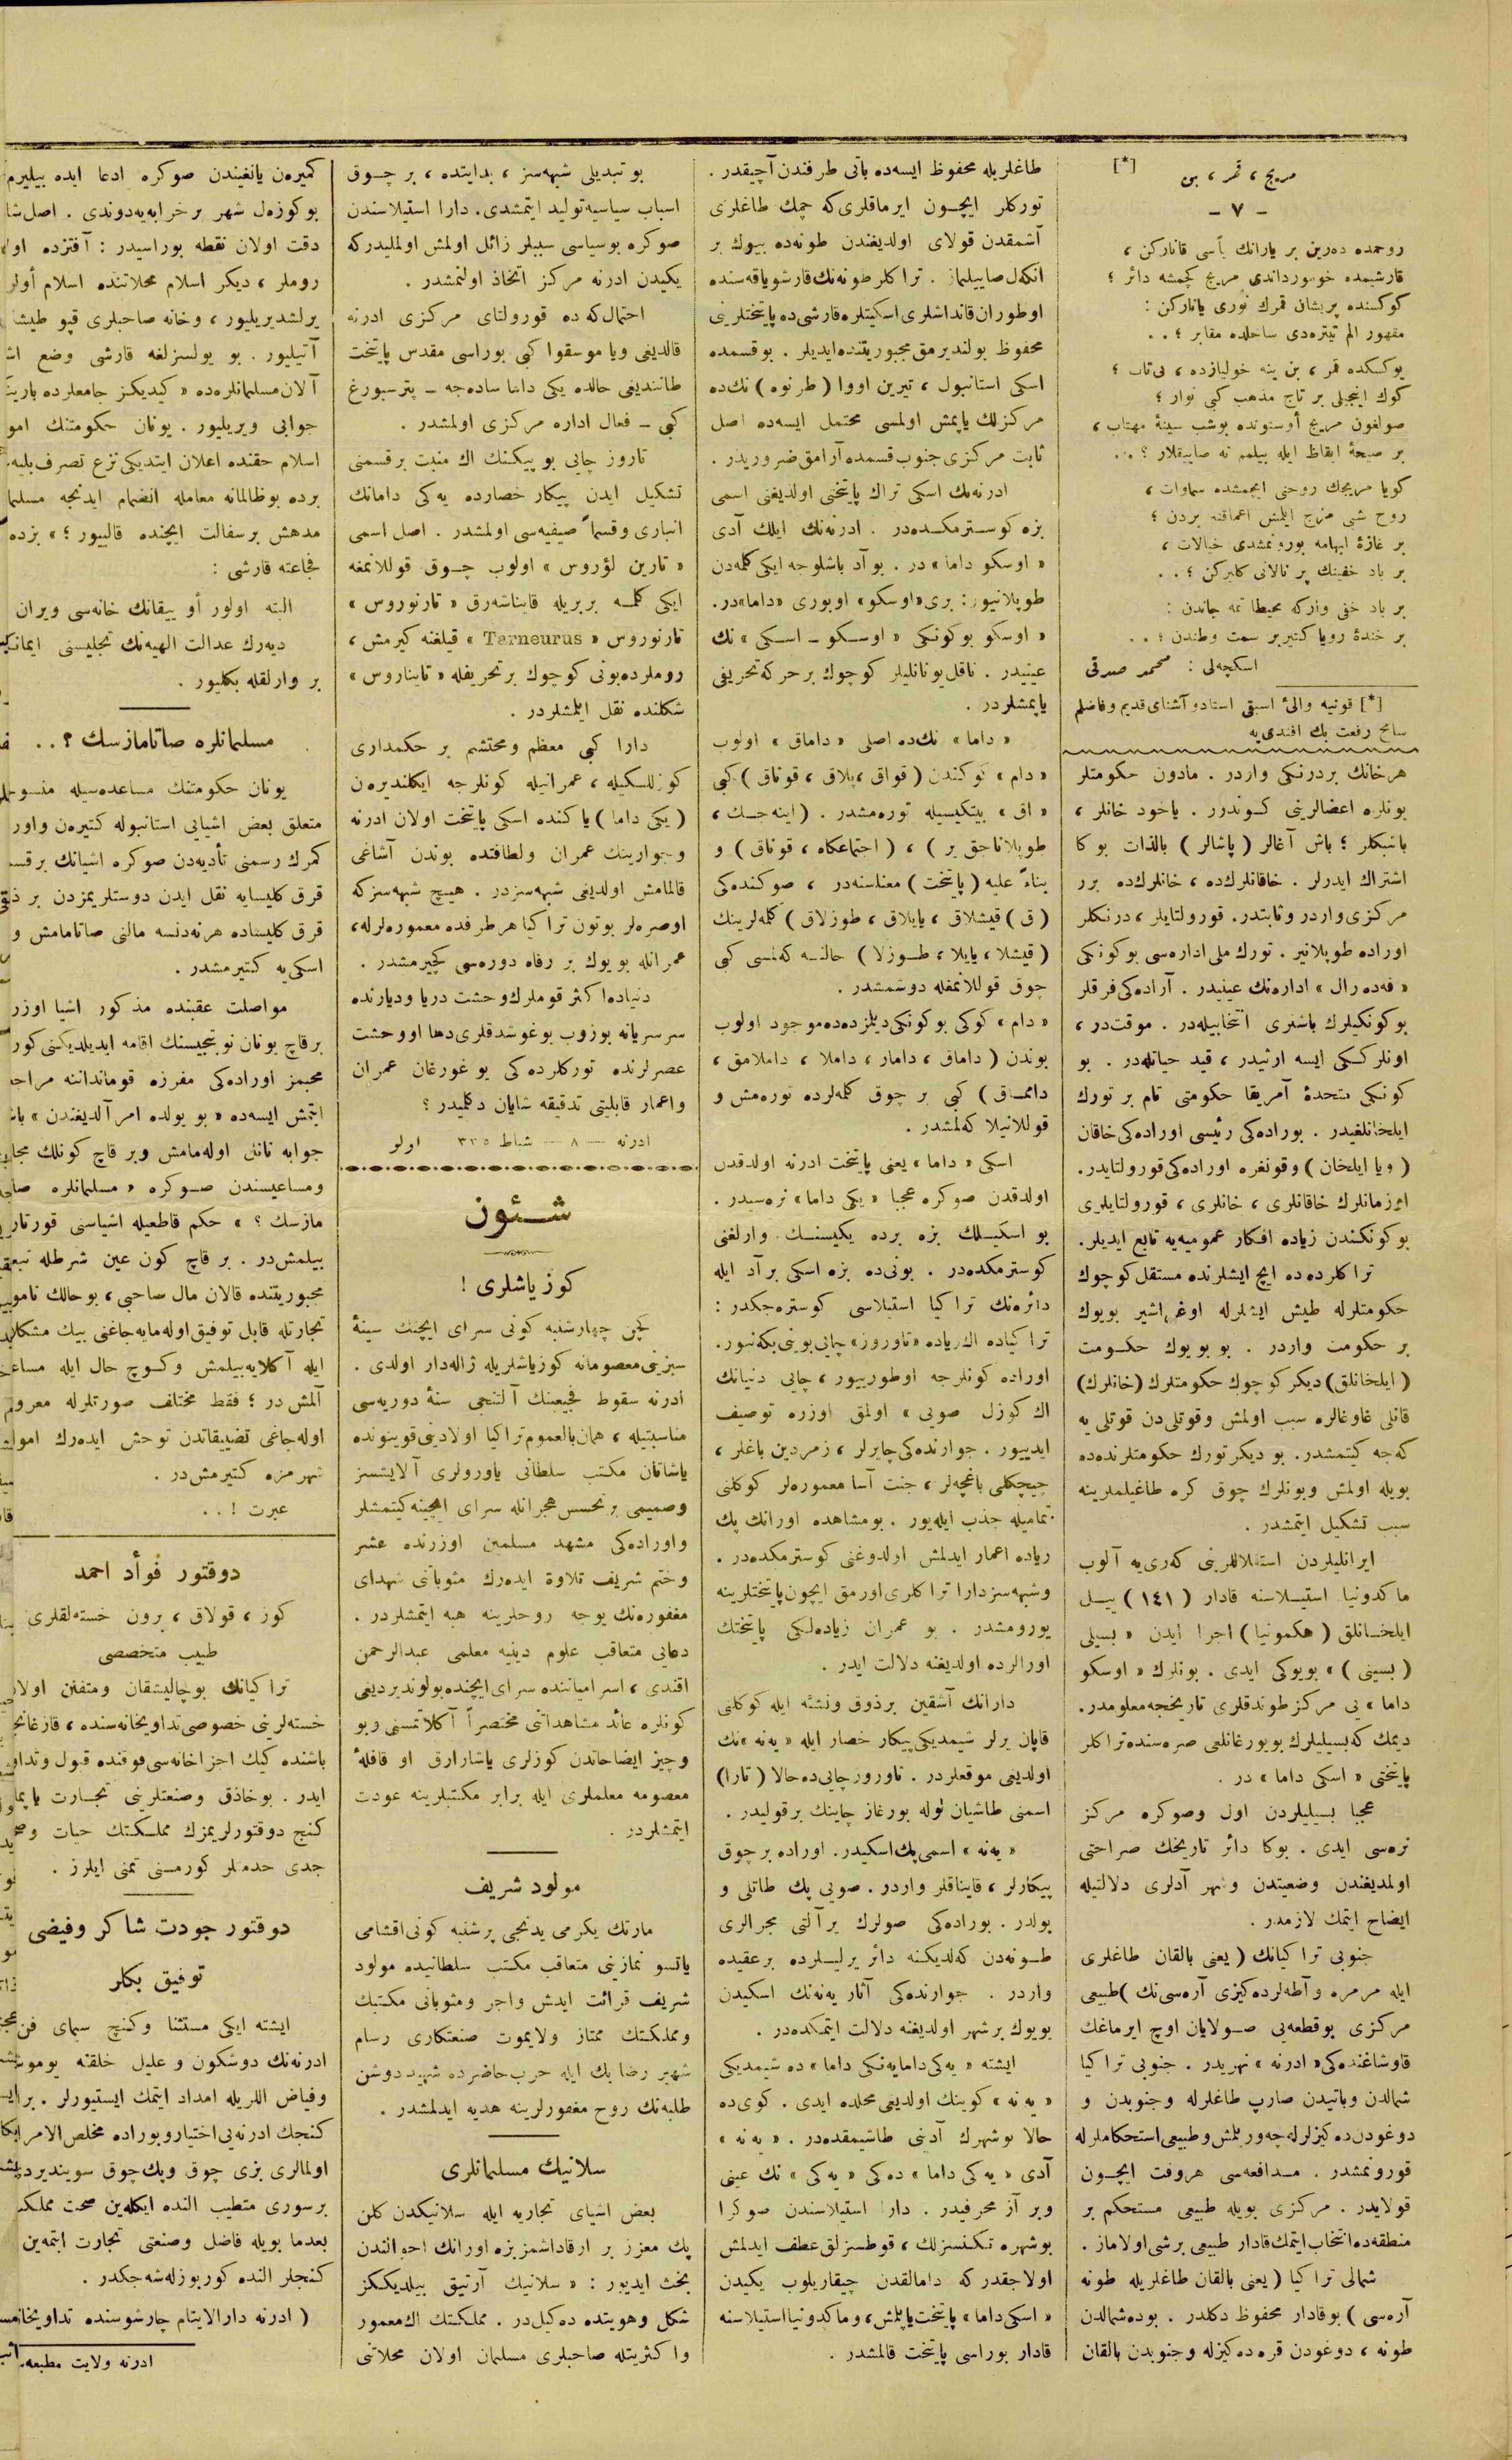 مریچ ، قمر ، بن [*]
- ٧ -
روحمده ده‌رین بر یارانك یأسی قانارکن ،
قارشیمده خوموردانردی مریج کچمشه دائر ؛
کوکسنده پریشان قمرك نوری یانارکن :
مقهور الم تیتره‌دی ساحلده مقابر ؛ . .
یوکسکده قمر ، بن ینه خولیازده ، بی‌تاب ؛
کوك اینجیلی بر تاج مذهب کبی نوار ؛
صولغون مریج أوستونده بوشب سینهٔ مهتاب ،
بر صیحهٔ ایقاظ ایله بیلمم نه صاییقلار ؟ . .
کویا مریجك روحنی ایچمشده سماوات ،
روح شبی مزج ایلمش اعماقنه بردن ؛
بر غازهٔ ابهامه بورونمشدی خیالات ،
بر باد خفینك پر نالانی کلیرکن ؛ . .
بر باد خفی وارکه محیطاتمه جاندن :
بر خندهٔ رویا کتیریر سمت وطندن ؛ . .
اسکچه‌لی : محمد صدقی
[*] قونیه والئ اسبقی استاد و آشنای قدیم و فاضلم
سامح رفعت بك افندی‌یه
هرخانك بردرنکی واردر . مادون حکومتلر
بونلره اعضالرینی کوندرر . یاخود خانلر ،
باشبکلر ؛ باش آغالر ( پاشالر ) بالذات بوکا
اشتراك ایدرلر . خاقانلرك‌ده ، خانلرك‌ده برر
مرکزی واردر و ثابتدر. قورولتایلر ، درنکلر
اوراده طوپلانیر . تورك ملی اداره‌سی بوکونکی
« فه‌ده‌رال » اداره‌نك عینیدر . آراده‌کی فرقلر
بوکونکیلرك باشلری انتخابیله‌در . موقت‌در ،
اونلرکی ایسه ارثیدر ، قید حیاتله‌در . بو
کونکی متحدهٔ آمریقا حکومتی تام بر تورك
ایلخانلغیدر . بوراده‌کی رئیسی اوراده‌کی خاقان
( ویا ایلخان ) وقونغره اوراده‌کی قورولتایدر.
اوزمانلرك خاقانلری ، خانلری ، قورولتایلری
بوکونکندن زیاده افکار عمومیه‌یه تابع ایدیلر.
تراکلرده‌ده ایچ ایشلرنده مستقل کوچوك
حکومتلرله طیش ایشلرله اوغراشیر بویوك
بر حکومت واردر . بو بویوك حکومت
( ایلخانلق) دیکر کوچوك حکومتلرك (خانلرك)
قانلی غاوغالره سبب اولمش وقوتلی‌دن قوتلی یه
که‌جه کیتمشدر. بو دیکر تورك حکومتلرنده‌ده
بویله اولمش وبونلرك چوق کره طاغیلملرینه
سبب تشکیل ایتمشدر .
ایرانلیلردن استقلاللرینی که‌ری‌یه آلوب
ماکدونیا استیلاسنه قادار ( ١٤١ ) ییل
ایلخانلق ( هکمونیا ) اجرا ایدن « بسیلی
( بسینی ) » بویوکی ایدی . بونلرك « اوسکو
داما » یی مرکز طوتدقلری تاریخجه معلومدر.
دیمك که بسیلیلرك بویورغانلغی صره‌سنده تراکلر
پایتختی « اسکی داما » در .
عجبا بسیلیلردن اول وصوکره مرکز
نره‌سی ایدی . بوکا دائر تاریخك صراحتی
اولمدیغندن وضعیتدن وشهر آدلری دلالتیله
ایضاح ایتمك لازمدر .
جنوبی تراکیانك ( یعنی بالقان طاغلری
ایله مرمره وآطه‌لرده‌کیزی آره‌سی‌نك )طبیعی
مرکزی بوقطعه‌یی صولایان اوچ ایرماغك
قاوشاغنده‌کی « ادرنه » نهریدر . جنوبی تراکیا
شمالدن وباتیدن صارپ طاغلرله وجنوبدن و
دوغودن‌ده کیزلرله چه‌وریلمش وطبیعی استحکاملرله
قورونمشدر . مدافعه‌سی هروقت ایچون
قولایدر . مرکزی بویله طبیعی مستحکم بر
منطقه‌ده انتخاب ایتمك‌قادار طبیعی برشی اولاماز .
شمالی تراکیا ( یعنی بالقان طاغلریله طونه
آره‌سی ) بوقادار محفوظ دکلدر . بوده شمالدن
طونه ، دوغودن قره ده‌کیزله وجنوبدن بالقان
طاغلریله محفوظ ایسه‌ده باتی طرفندن آچیقدر .
تورکلر ایچون ایرماقلری کچمك طاغلری
آشمقدن قولای اولدیغندن طونه‌ده بیوك بر
انکل صاییلماز . تراکلر طونه‌نك قارشو یاقه‌سنده
اوطوران قانداشلری اسکیتلره قارشی‌ده پایتختلرینی
محفوظ بولندیرمق مجبوریتنده ایدیلر . بوقسمده
اسکی استانبول ، تیرین اووا ( طرنوه ) نك‌ده
مرکزلك یاپمش اولمسی محتمل ایسه‌ده اصل
ثابت مرکزی جنوب قسمده آرامق ضروریدر .
ادرنه‌نك اسکی تراك پایتختی اولدیغنی اسمی
بزه کوسترمکده‌در . ادرنه‌نك ایلك آدی
« اوسکو داما » در . بوآد باشلوجه ایکی کلمه‌دن
طوپلانیور: بری« اوسکو» اوبوری «داما»در.
« اوسکو بوکونکی « اوسکو ـ اسکی » نك
عینیدر . ناقل یونانلیلر کوچوك برحرکه تحریفی
یاپمشلردر .
« داما » نك‌ده اصلی « داماق » اولوب
« دام » کوکندن ( قواق ، یلاق ، قوناق ) کبی
« اق » بیتکیسیله توره‌مشدر . ( اینه‌جك ،
طوپلاناجق یر ) ، ( اجتماعکاه ، قوناق ) و
بناءً علیه ( پایتخت ) معناسنه‌در ، صوکنده‌کی
( ق ) قیشلاق ، یایلاق ، طوزلاق ) کلمه‌لرینك
( قیشلا ، یایلا ، طوزلا ) حالنه که‌لمسی کبی
چوق قوللانمغله دوشمشدر .
« دام » کوکی بوکونکی دیلمزده‌ده موجود اولوب
بوندن ( داماق ، دامار ، داملا ، داملامق ،
دامماق ) کبی بر چوق کلمه‌لرده توره‌مش و
قوللانیلا که‌لمشدر .
اسکی « داما » یعنی پایتخت ادرنه اولدقدن
اولدقدن صوکره عجبا « یکی داما » نره‌سیدر .
بو اسکیلك بزه برده یکیسنك وارلغنی
کوسترمکده‌در . بونی‌ده بزه اسکی برآد ایله
دائره‌نك تراکیا استیلاسی کوستره‌جکدر :
تراکیاده اك زیاده « تاوروز» چایی بوینی بکه‌نیور.
اوراده کونلرجه اوطورییور ، چایی دنیانك
اك کوزل صویی » اولمق اوزره توصیف
ایدییور . جوارنده‌کی چایرلر ، زمردین باغلر ،
چیچکلی باغچه‌لر ، جنت آسا معموره‌لر کوکلنی
تمامیله جذب ایله‌یور . بومشاهده اورانك پك
زیاده اعمار ایدلمش اولدوغنی کوسترمکده‌در .
وشبهه‌سز دارا تراکلری اورمق ایچون پایتختلرینه
یورومشدر . بو عمران زیاده‌لکی پایتختك
اورالرده اولدیغنه دلالت ایدر .
دارانك آشقین برذوق ونشئه ایله کوکلنی
قاپان یرلر شیمدیکی پیکار خصار ایله « یه‌نه »نك
اولدیغی موقعلردر . تاوروز چایی‌ده حالا ( تارا)
اسمنی طاشیان لوله بورغاز چاینك برقولیدر .
« یه‌نه » اسمی پك‌اسکیدر. اوراده برچوق
پیکارلر ، قایناقلر واردر . صویی پك طاتلی و
بولدر . بوراده‌کی صولرك یرآلتی مجرالری
طونه‌دن که‌لدیکنه دائر یرلیلرده برعقیده
واردر . جوارنده‌کی آثار یه‌نه‌نك اسکیدن
بویوك برشهر اولدیغنه دلالت ایتمکده‌در .
ایشته « یه‌کی‌دامایه‌نکی داما » ده شیمدیکی
« یه نه » کوینك اولدیغی محلده ایدی . کوی‌ده
حالا بوشهرك آدینی طاشیمقده‌در . « یه نه »
آدی « یه‌کی داما » ده‌کی « یه‌کی » نك عینی
وبر آز محرفیدر . دارا استیلاسندن صوکرا
بوشهره تکنسزلك ، قوطسزلق عطف ایدلمش
اولاجقدر که دامالقدن چیقاریلوب یکیدن
« اسکی داما » پایتخت یاپیلمش، وماکدونیااستیلاسنه
قادار بوراسی پایتخت قالمشدر .
بو تبدیلی شبهه‌سز ، بدایتده ، بر چوق
اسباب سیاسیه تولید ایتمشدی. دارا استیلاسندن
صوکره بوسیاسی سببلر زائل اولمش اولملیدرکه
یکیدن ادرنه مرکز اتخاذ اولنمشدر .
احتمال که ده قورولتای مرکزی ادرنه
قالدیغی ویا موسقوا کبی بوراسی مقدس پایتخت
طانندیغی حالده یکی داما ساده‌جه ـ پترسبورغ
کبی ـ فعال اداره مرکزی اولمشدر .
تاروز چایی بو پیکتك اك منبت برقسمنی
تشکیل ایدن پیکار خصارده یه‌کی دامانك
انباری وقسماً صیفیه‌سی اولمشدر . اصل اسمی
« تارین لؤروس » اولوب چوق قوللانمغه
ایکی کلمه بربریله قایناشه‌رق « تارنوروس »
تارنوروس « Tarneurus » قیلغنه کیرمش ،
روملرده‌بونی کوچوك برتحریفله « تایناروس »
شکلنده نقل ایلمشلردر .
دارا کبی معظم ومحتشم بر حکمداری
کوزللکیله ، عمرانیله کونلرجه ایکلندیره‌ن
( یکی داما ) یا کنده اسکی پایتخت اولان ادرنه
وجوارینك عمران ولطافتده بوندن آشاغی
قالمامش اولدیغی شبهه‌سزدر . هیچ شبهه‌سزکه
اوصره‌لر بوتون تراکیا هرطرفده معموره‌لرله،
عمرانله بویوك بر رفاه دوره‌سی کچیرمشدر .
دنیاده اکثر قوملرك وحشت دریا ودیارنده
سرسریانه بوزوب بوغوشدقلری دها اووحشت
عصرلرنده تورکلرده‌کی یوغورغان عمران
واعمار قابلیتی تدقیقه شایان دکلمیدر ؟
ادرنه — ٨ — شباط ٣٣٥ اولو
شئون
کوز یاشلری !
کچن چهارشنبه کونی سرای ایچینك سینهٔ
سبزینی معصومانه کوزیاشلریله ژاله‌دار اولدی .
ادرنه سقوط فجیعه‌سنك آلتنجی سنهٔ دوریه‌سی
مناسبتیله ، همان بالعموم تراکیا اولادینی قوینونده
یاشاتان مکتب سلطانی یاورولری آلایشسز
وصمیمی برتحسس هجرانله سرای ایچینه کیتمشلر
واوراده‌کی مشهد مسلمین اوزرنده عشر
وختم شریف تلاوة ایده‌رك مثوباتنی شهدای
مغفوره‌نك یوجه روحلرینه هبه ایتمشلردر .
دعایی متعاقب علوم دینیه معلمی عبدالرحمن
افندی ، اسرامیاننده سرای‌ایچنده بولوندیردیغی
کونلره عائد مشاهداتنی مختصراً آکلاتمسنی وبو
وجیز ایضاحاتدن کوزلری یاشارارق او قافلهٔ
معصومه معلملری ایله برابر مکتبلرینه عودت
ایتمشلردر .
مولود شریف
مارتك یکرمی یدنجی پرشنبه کونی‌اقشامی
یاتسو نمازینی متعاقب مکتب سلطانیده مولود
شریف قرائت ایدش واجر ومثوباتی مکتبك
ومملکتك ممتاز ولایموت صنعتکاری رسام
شهیر رضا بك ایله حرب حاضرده شهید دوشن
طلبه‌نك روح مغفورلرینه هدیه ایدلمشدر .
سلانیك مسلمانلری
بعض اشیای تجاریه ایله سلانیکدن کلن
پك معزز بر ارقاداشمز بزه اورانك احوالندن
بحث ایدیور : « سلانیك آرتیق بیلدیککز
شکل وهویتده ده‌کیل‌در . مملکتك اك معمور
واکثریتله صاحبلری مسلمان اولان محلاتی
کمیره‌ن یانغیندن صوکره ادعا ایده بیلیرم
بوکوزه‌ل شهر برخرابه‌یه‌دوندی . اصل شا
دقت اولان نقطه بوراسیدر : آفتزده او
روملر ، دیکر اسلام محلاتنده اسلام أولر
یرلشدیریلیور ، وخانه صاحبلری قپو طیشا
آتیلیور . بو یولسزلغه قارشی وضع اش
آلان مسلمانلره‌ده « کیدیکز جامعلرده یارینك
جوابی ویریلیور . یونان حکومتنك امو
اسلام حقنده اعلان ایتدیکی نزع تصرف‌یلیه
برده بوظالمانه معامله انضمام ایدنجه مسلما
مدهش برسفالت ایچنده قالییور ؛ » بزده
فجاعته قارشی :
البته اولور أو ییقانك خانه‌سی ویران
دیه‌رك عدالت الهیه‌نك تجلیسنی ایمانك
بر وارلقله بکلیور .
مسلمانلره صاتامازسك ؟ . .
یونان حکومتنك مساعده‌سیله منسو
متعلق بعض اشیایی استانبوله کتیره‌ن واور
کمرك رسمنی تأدیه‌دن صوکره اشیانك برقسم
قرق کلیسایه نقل ایدن دوستلریمزدن بر ذ
قرق کلیساده هرنه‌دنسه مالنی صاتامامش و
اسکی‌یه کتیرمشدر .
مواصلت عقبنده مذکور اشیا اوزر
برقاچ یونان نوبتجیسنك اقامه ایدیلدیکنی کور
محبمز اوراده‌کی مفرزه قوماندانه مراجه
ایتمش ایسه‌ده « بو یولده امر آلدیغندن » باش
جوابه نائل اوله‌مامش وبر قاچ کونلك مجا
ومساعیسندن صوکره « مسلمانلره صا
مازسك ؟ » حکم قاطعیله اشیاسنی قورتار
بیلمش‌در . بر قاچ کون عین شرطله تبعه
مجبوریتنده قالان مال صاحبی ، بوحالك نامو
تجارتله قابل توفیق اوله‌مایه‌جاغنی بیك مشکلا
ایله آکلایه‌بیلمش وکوچ حال ایله مساع
آلمش‌در ؛ فقط مختلف صورتلرله معرو
اوله‌جاغی تضییقاتدن توحش ایده‌رك اموا
شهرمزه کتیرمش‌در .
عبرت ! . .
دوقتور فوأد احمد
کوز ، قولاق ، برون خسته‌لقلری
طبیب متخصصی
تراکیانك بوچالیشقان ومتفنن اولا
خسته‌لرینی خصوصی تداویخانه‌سنده ، قازغانجـ
باشنده کیك اجزاخانه‌سی فوقنده قبول وتداو
ایدر . بوخاذق وصنعتلرینی تجارت یاپما
کنج دوقتورلریمزك مملکتك حیات وصح
جدی خدمتلر کورمسنی تمنی ایلرز .
دوقتور جودت شاکر وفیضی
توفیق بکلر
ایشته ایکی مستثنا وکنج سیمای فن
ادرنه‌نك دوشکون و علیل خلقنه یوموش
وفیاض اللریله امداد ایتمك ایستیورلر . برا
کنجك ادرنه‌یی اختیار وبوراده مخلص الامر
اولمالری بزی چوق وپك‌چوق سویندیردی
برسوری متطبب النده ایکله‌ین صحت مملکـ
بعدما بویله فاضل وصنعتی تجارت ایتمه‌ین
کنجلر النده کوربوزله‌شه‌جکدر .
( ادرنه دارالایتام چارشوسنده تداویخا
ادرنه ولایت مطبعه